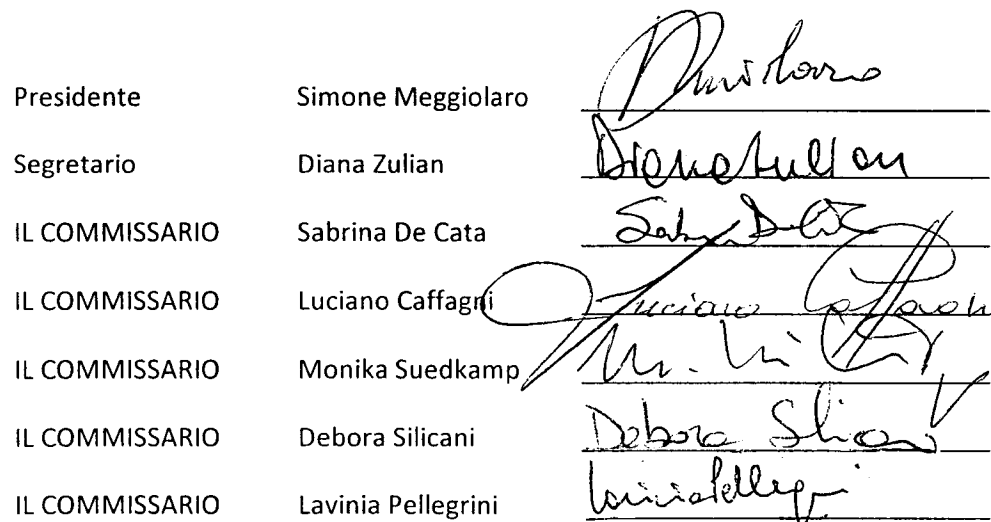 Presidente Simone Meggiolaro
Segretario Diana Zulian Diana Zulian
IL COMMISSARIO Sabrina De Cata
IL COMMISSARIO Luciano Caffagni Luciano Caffagni
IL COMMISSARIO Monika Suedkamp
IL COMMISSARIO Debora Silicani Debora Silicani
IL COMMISSARIO Lavinia Pellegrini Lavinia Pellegrini